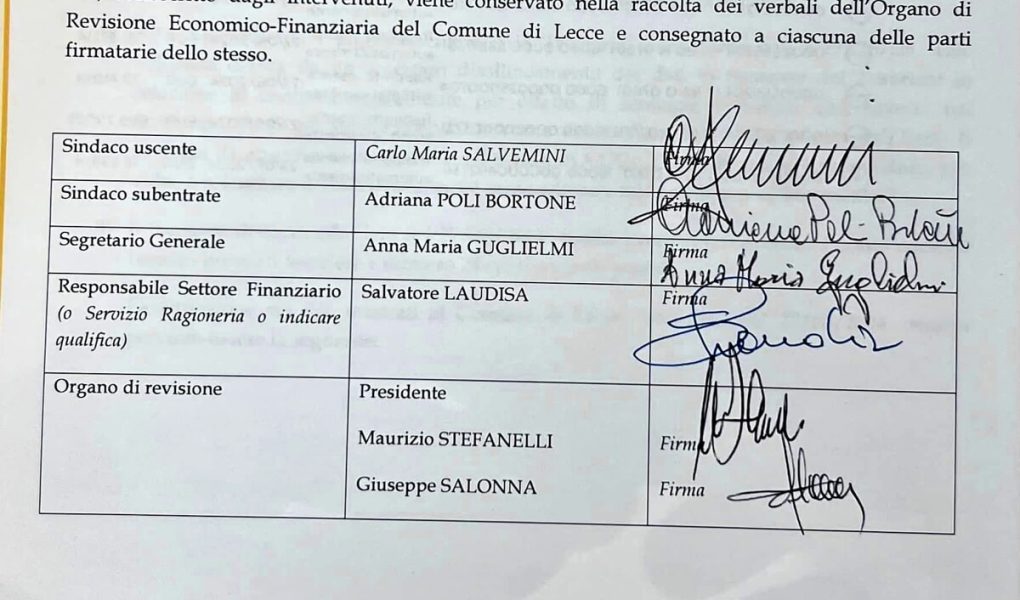 dagli intervenuti, viene conservato nella raccolta dei verbali dell'Organo di
Revisione Economico-Finanziaria del Comune di Lecce e consegnato a ciascuna delle parti
firmatarie dello stesso.
Sindaco uscente Carlo Maria SALVEMINI Firma
Sindaco subentrate Adriana POLI BORTONE Firma
Adriana Poli Bortone
Segretario Generale Anna Maria GUGLIELMI Firma
Anna Maria Guglielmi
Responsabile Settore Finanziario Salvatore LAUDISA Firma
(o Servizio Ragioneria o indicare
qualifica)
Organo di revisione Presidente
Maurizio STEFANELLI Firma
Giuseppe SALONNA Firma